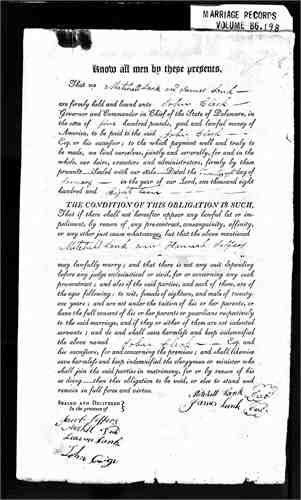 MARRIAGE RECORDS
VOLUME 86.198
Know all men by these presents,
That we Mitchell Lank and James Lank
are firmly held and bound unto John Clark
Governor and Commander in Chief of the State of Delaware, in
the sum of five hundred pounds, good and lawful money of
America, to be paid to the said John Clark
Esq. or his successors; to the which payment well and truly to
be made, we bind ourselves, jointly and severally, for and in the
whole, our heirs, executors and administrators, firmly by these
presents. Sealed with our seals. Dated the day of
January in the year of our Lord, one thousand eight
hundred and
THE CONDITION OF THIS OBLIGATION IS SUCH,
That if there shall not hereafter appear any lawful let or im-
pediment, by reason of any precontract, consanguinity, affinity,
or any other just cause whatsoever, but that the above mentioned
Mitchell Lank and Hannah
may lawfully marry; and that there is not any suit depending
before any judge ecclesiastical or civil, for or concerning any such
precontract; and also if the said parties, and each of them, are of
the ages following: to wit, female of eighteen, and male of twenty-
one years; and are not under the tuition of his or her parents, or
have the full consent of his or her parents or guardians respectively
to the said marriage; and if they or either of them are not indented
servants; and do and shall save harmless and keep indemnified
the above named John Clark Esq. and
his successors, for and concerning the premises; and shall likewise
save harmless and keep indemnified the clergyman or minister who
shall join the said parties in matrimony, for or by reason of his
so doing—then this obligation to be void, or else to stand and
remain in full force and virtue.
SEALED AND DELIVERED
In the presence of
Mitchell Lank
James Lank
Jacob
Lank
John